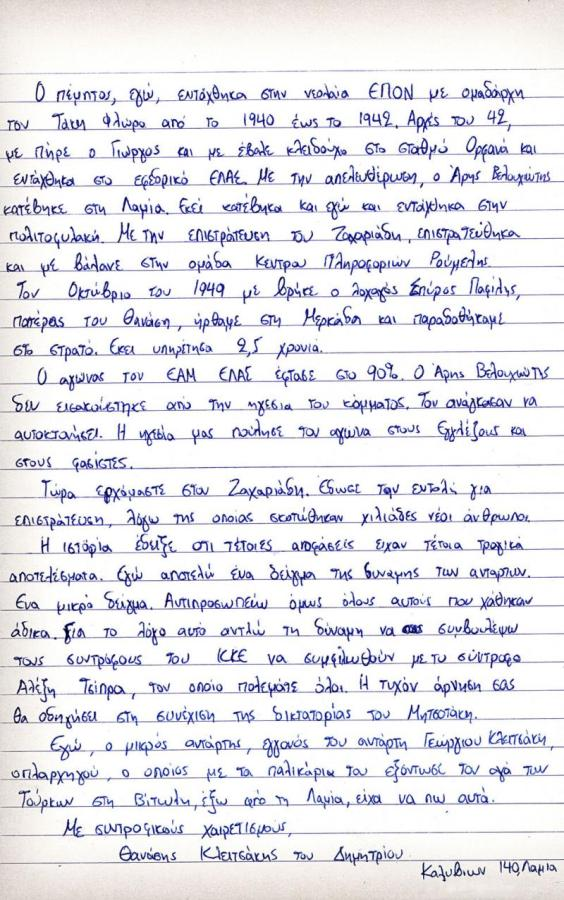 Ο πέμπτος, εγώ, εντάχθηκα στην νεολαία ΕΠΟΝ με ομαδάρχη
τον Τάκη Φλώρο από το 1940 έως το 1942. Αρχές του 42,
με πήρε ο Γιώργος και με έβαλε κλειδούχο στο σταθμό Οργανά και
εντάχθηκα στο εφεδρικό ΕΛΑΣ. Με την απελευθέρωση, ο Άρης Βελουχιώτης
κατέβηκε στη Λαμία. Εκεί κατέβηκα και εγώ και εντάχθηκα στην
πολιτοφυλακή. Με την επιστράτευση του Ζαχαριάδη, επιστρατεύθηκα
και με βάλανε στην ομάδα Κέντρου Πληροφοριών Ρούμελης.
Τον Οκτώβριο του 1949 με βρήκε ο λοχαγός Σπύρος Παφίλης,
πατέρας του Θανάση, ήρθαμε στη Μερκάδα και παραδοθήκαμε
στο στρατό. Εκεί υπηρέτησα 2,5 χρονια.
Ο αγώνας του ΕΑΜ ΕΛΑΣ έφτασε στο 90%. Ο Άρης Βελουχιώτης
δεν εισακούστηκε από την ηγεσία του κόμματος. Τον ανάγκασαν να
αυτοκτονήσει. Η ηγεσία μας πούλησε τον αγωνα στους Εγγλέζους και
στους φασίστες.
Τώρα ερχόμαστε στον Ζαχαριάδη. Έδωσε την εντολή για
επιστράτευση, λόγω της οποίας σκοτώθηκαν χιλιάδες νέοι άνθρωποι.
Η ιστορία έδειξε οτι τέτοιες αποφάσεις είχαν τέτοια τραγικά
αποτελέσματα. Εγώ αποτελώ ένα δείγμα της δύναμης των ανταρτών.
Ένα μικρό δείγμα. Αντιπροσωπεύω όμως όλους αυτούς που χάθηκαν
άδικα. Για το λόγο αυτό αντλώ τη δύναμη να συμβουλέψω
τους συντρόφους του ΚΚΕ να συμφιλιωθούν με το σύντροφο
Αλέξη Τσίπρα, τον οποίο πολεμάτε όλοι. Η τυχόν άρνηση σας
θα οδηγήσει στη συνέχιση της δικτατορίας του Μητσοτάκη.
Εγώ, ο μικρός αντάρτης, εγγονός του αντάρτη Γεώργιου Κλειτσάκη,
οπλαρχηγού, ο οποίος με τα παλικάρια του εξόντωσε τον αγά των
Τούρκων στη Βίτωλη, έξω από τη Λαμία, είχα να πω αυτά.
Με συντροφικούς χαιρετισμούς,
Θανάσης Κλειτσάκης του Δημητρίου
Καλυβίων 140, Λαμία